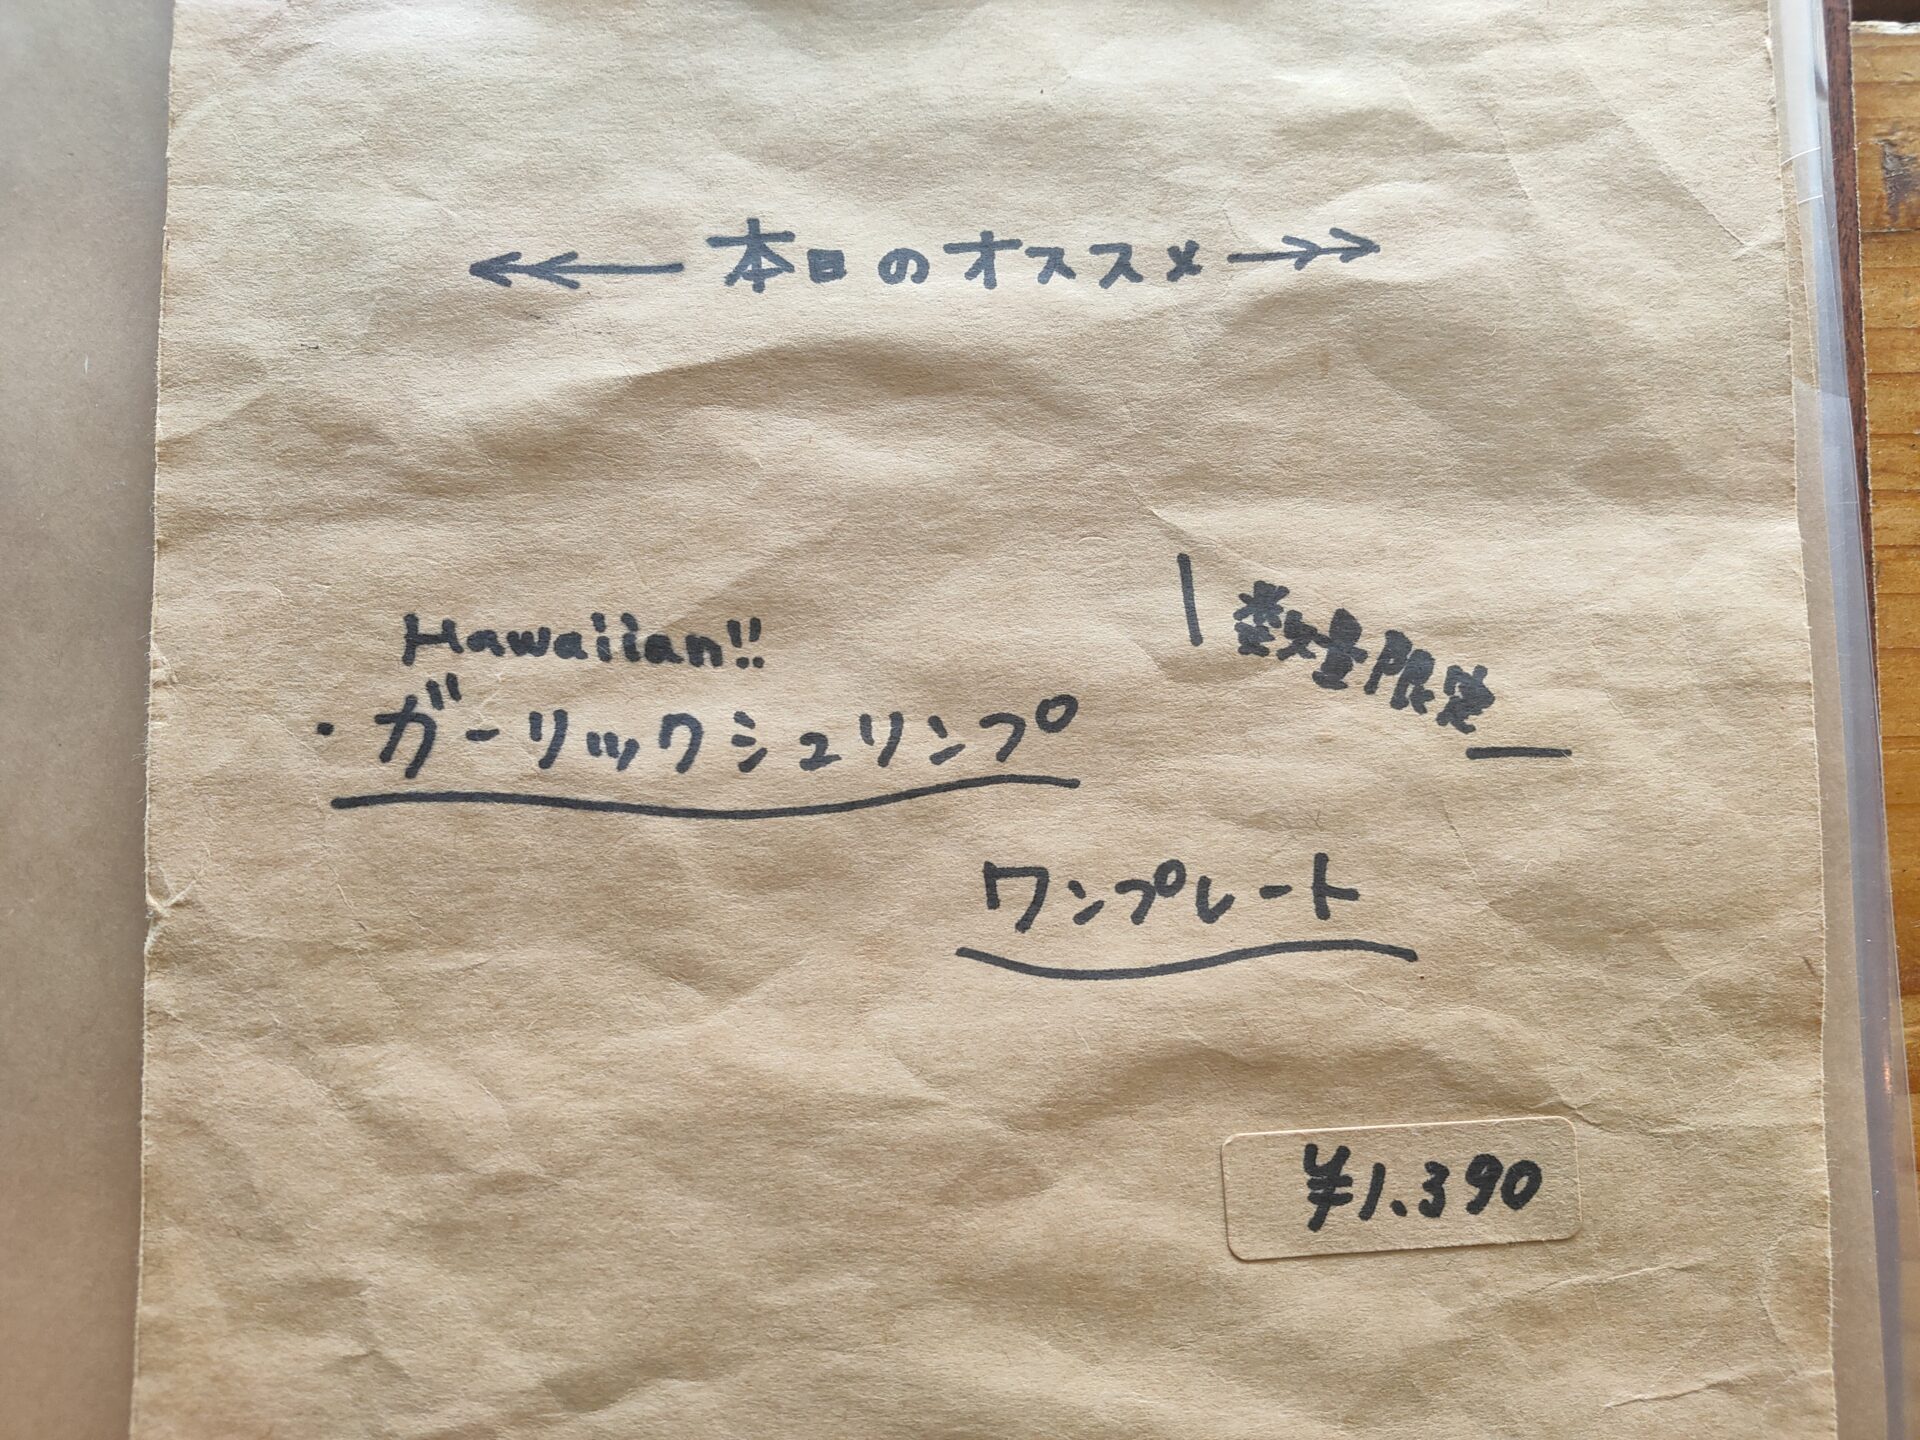 本日のオススメ
Hawaiian!!
数量限定
・ガーリックシュリンプ
ワンプレート
¥1.390